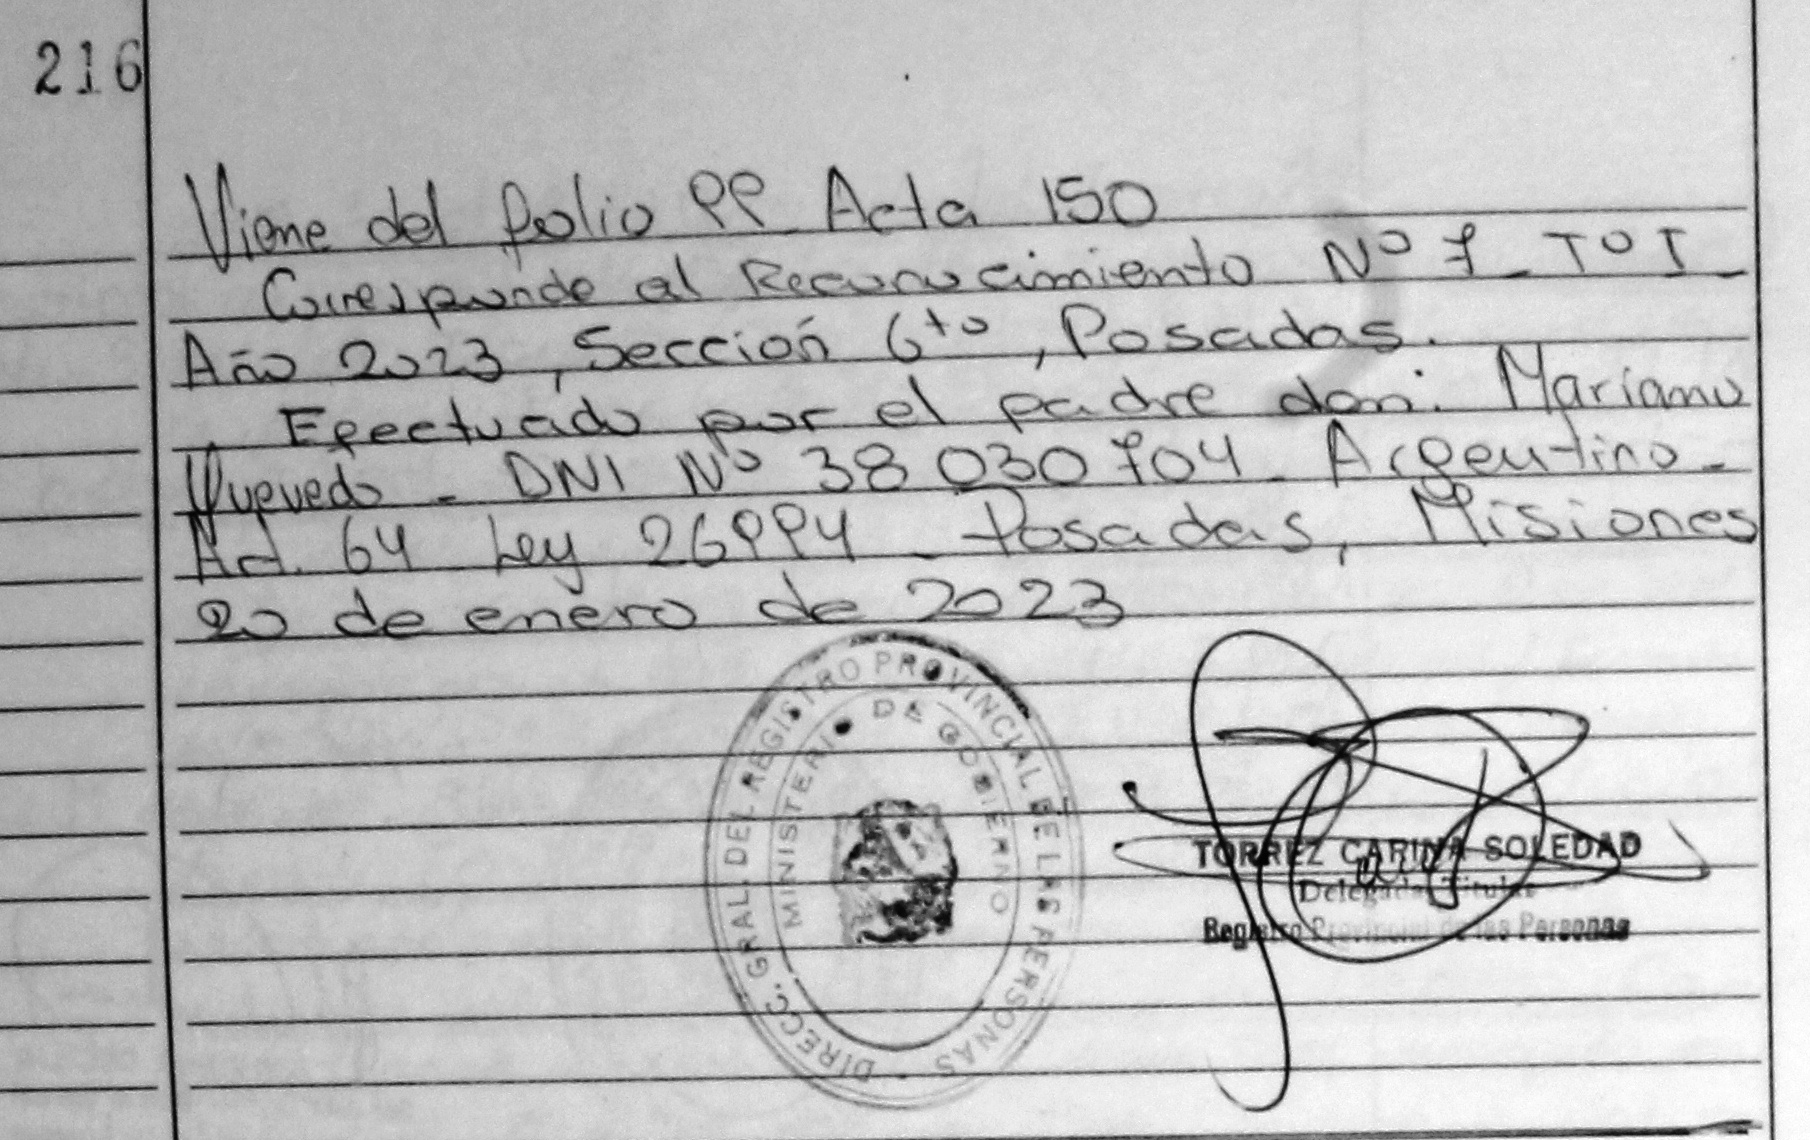 216
Viene del folio 99 Acta 150
Corresponde al Reconocimiento Nº 7 - Tº I -
Año 2023, Sección 6to, Posadas.
Efectuado por el padre don: Mariano
Quevedo - DNI Nº 38 030 704 - Argentino -
Art. 64 Ley 26994 - Posadas, Misiones
20 de enero de 2023
DIRECC. GRAL. DEL REGISTRO PROVINCIAL DE LAS PERSONAS
MINISTERIO DE GOBIERNO
TORREZ CARINA SOLEDAD
Delegada Titular
Registro Provincial de las Personas